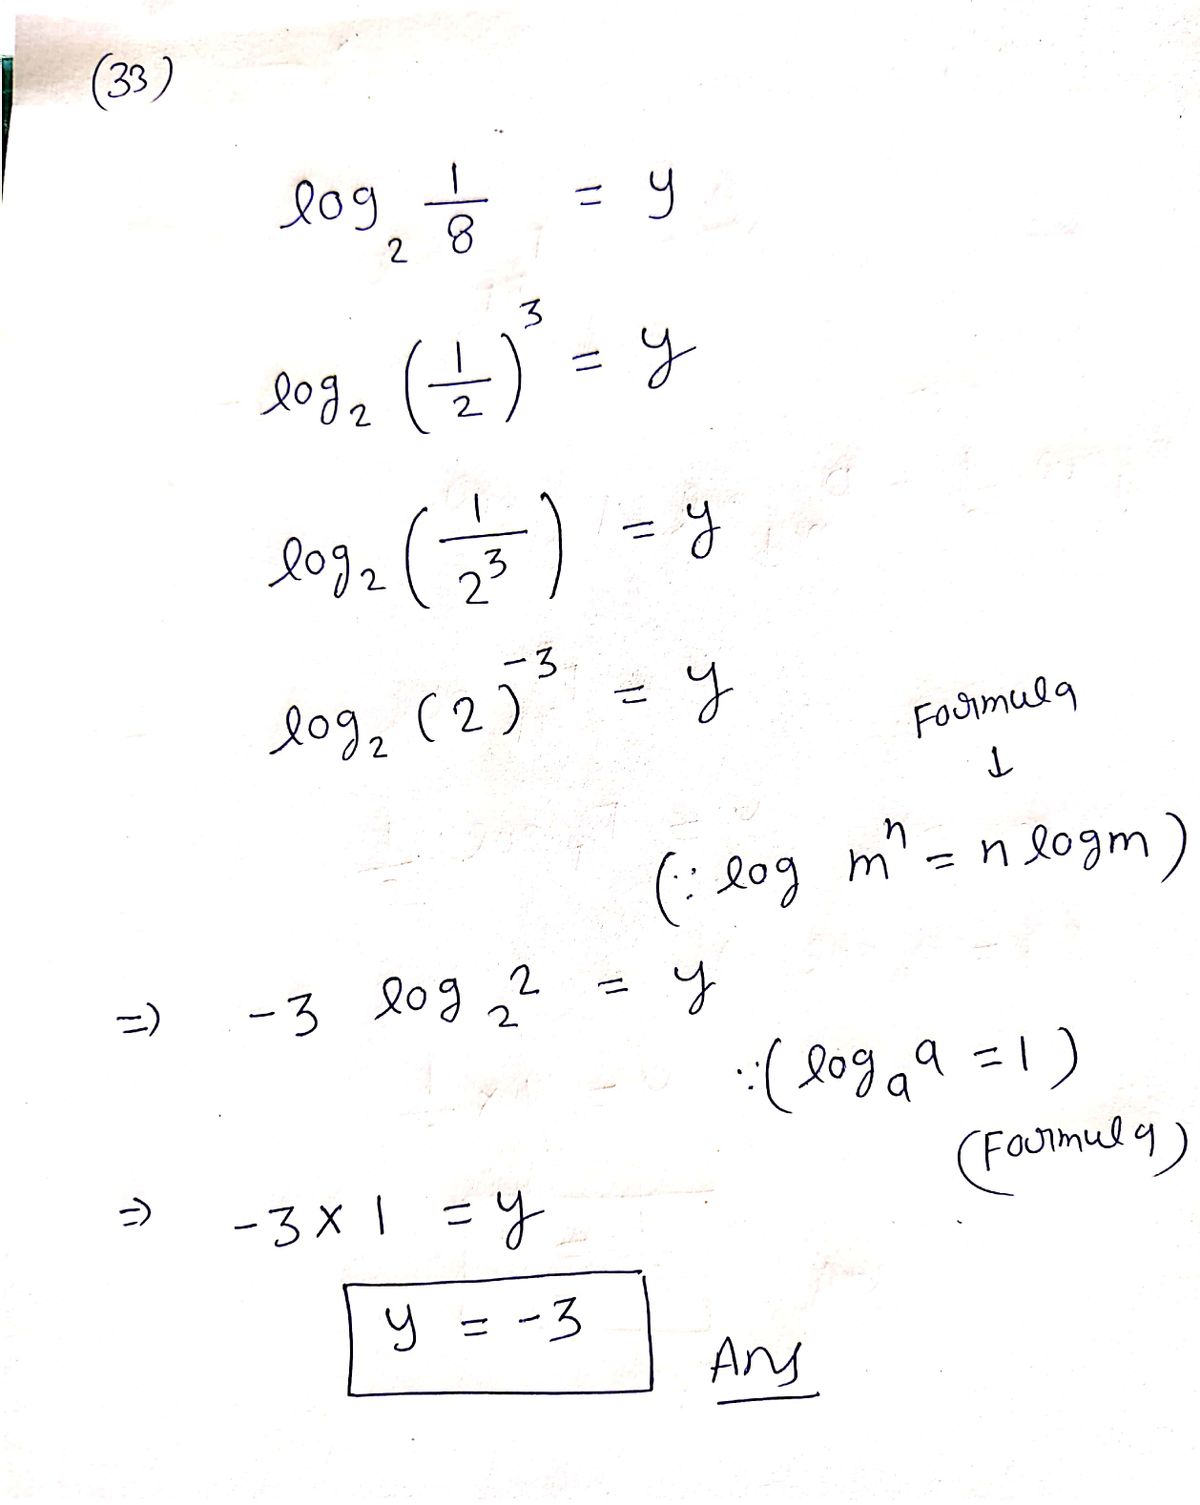 (33)
log₂ 1/8 = y
log₂ (1/2)³ = y
log₂ (1/2³) = y
log₂ (2)⁻³ = y
Formula
↓
(∵ log mⁿ = n log m)
⇒ -3 log₂ 2 = y
∵ (logₐ a = 1)
(Formula)
⇒ -3 × 1 = y
y = -3 Ans